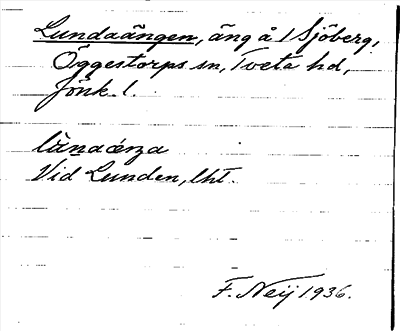 Lundaängen, äng å 1 Sjöberg,
Öggestorps sn, Tveta hd,
Jönk. l.
Vid Lunden, lht.
F. Neij 1936.